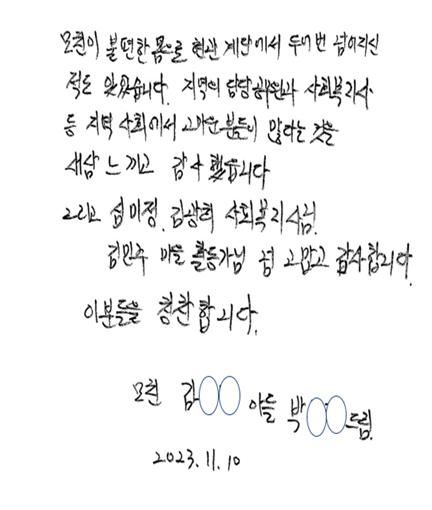 모친이 불편한 몸으로 현관 계단에서 두어번 넘어지신
적도 있었습니다. 지역의 담당 공무원과 사회복지사
등 지역 사회에서 고마운 분들이 많다는 것을
새삼 느끼고 감사했습니다
그리고 섭미정, 김광희 사회복지사님,
김민주 마을 활동가님 넘 고맙고 감사합니다.
이분들을 칭찬합니다.
모친 김○○ 아들 박○○드림.
2023.11.10